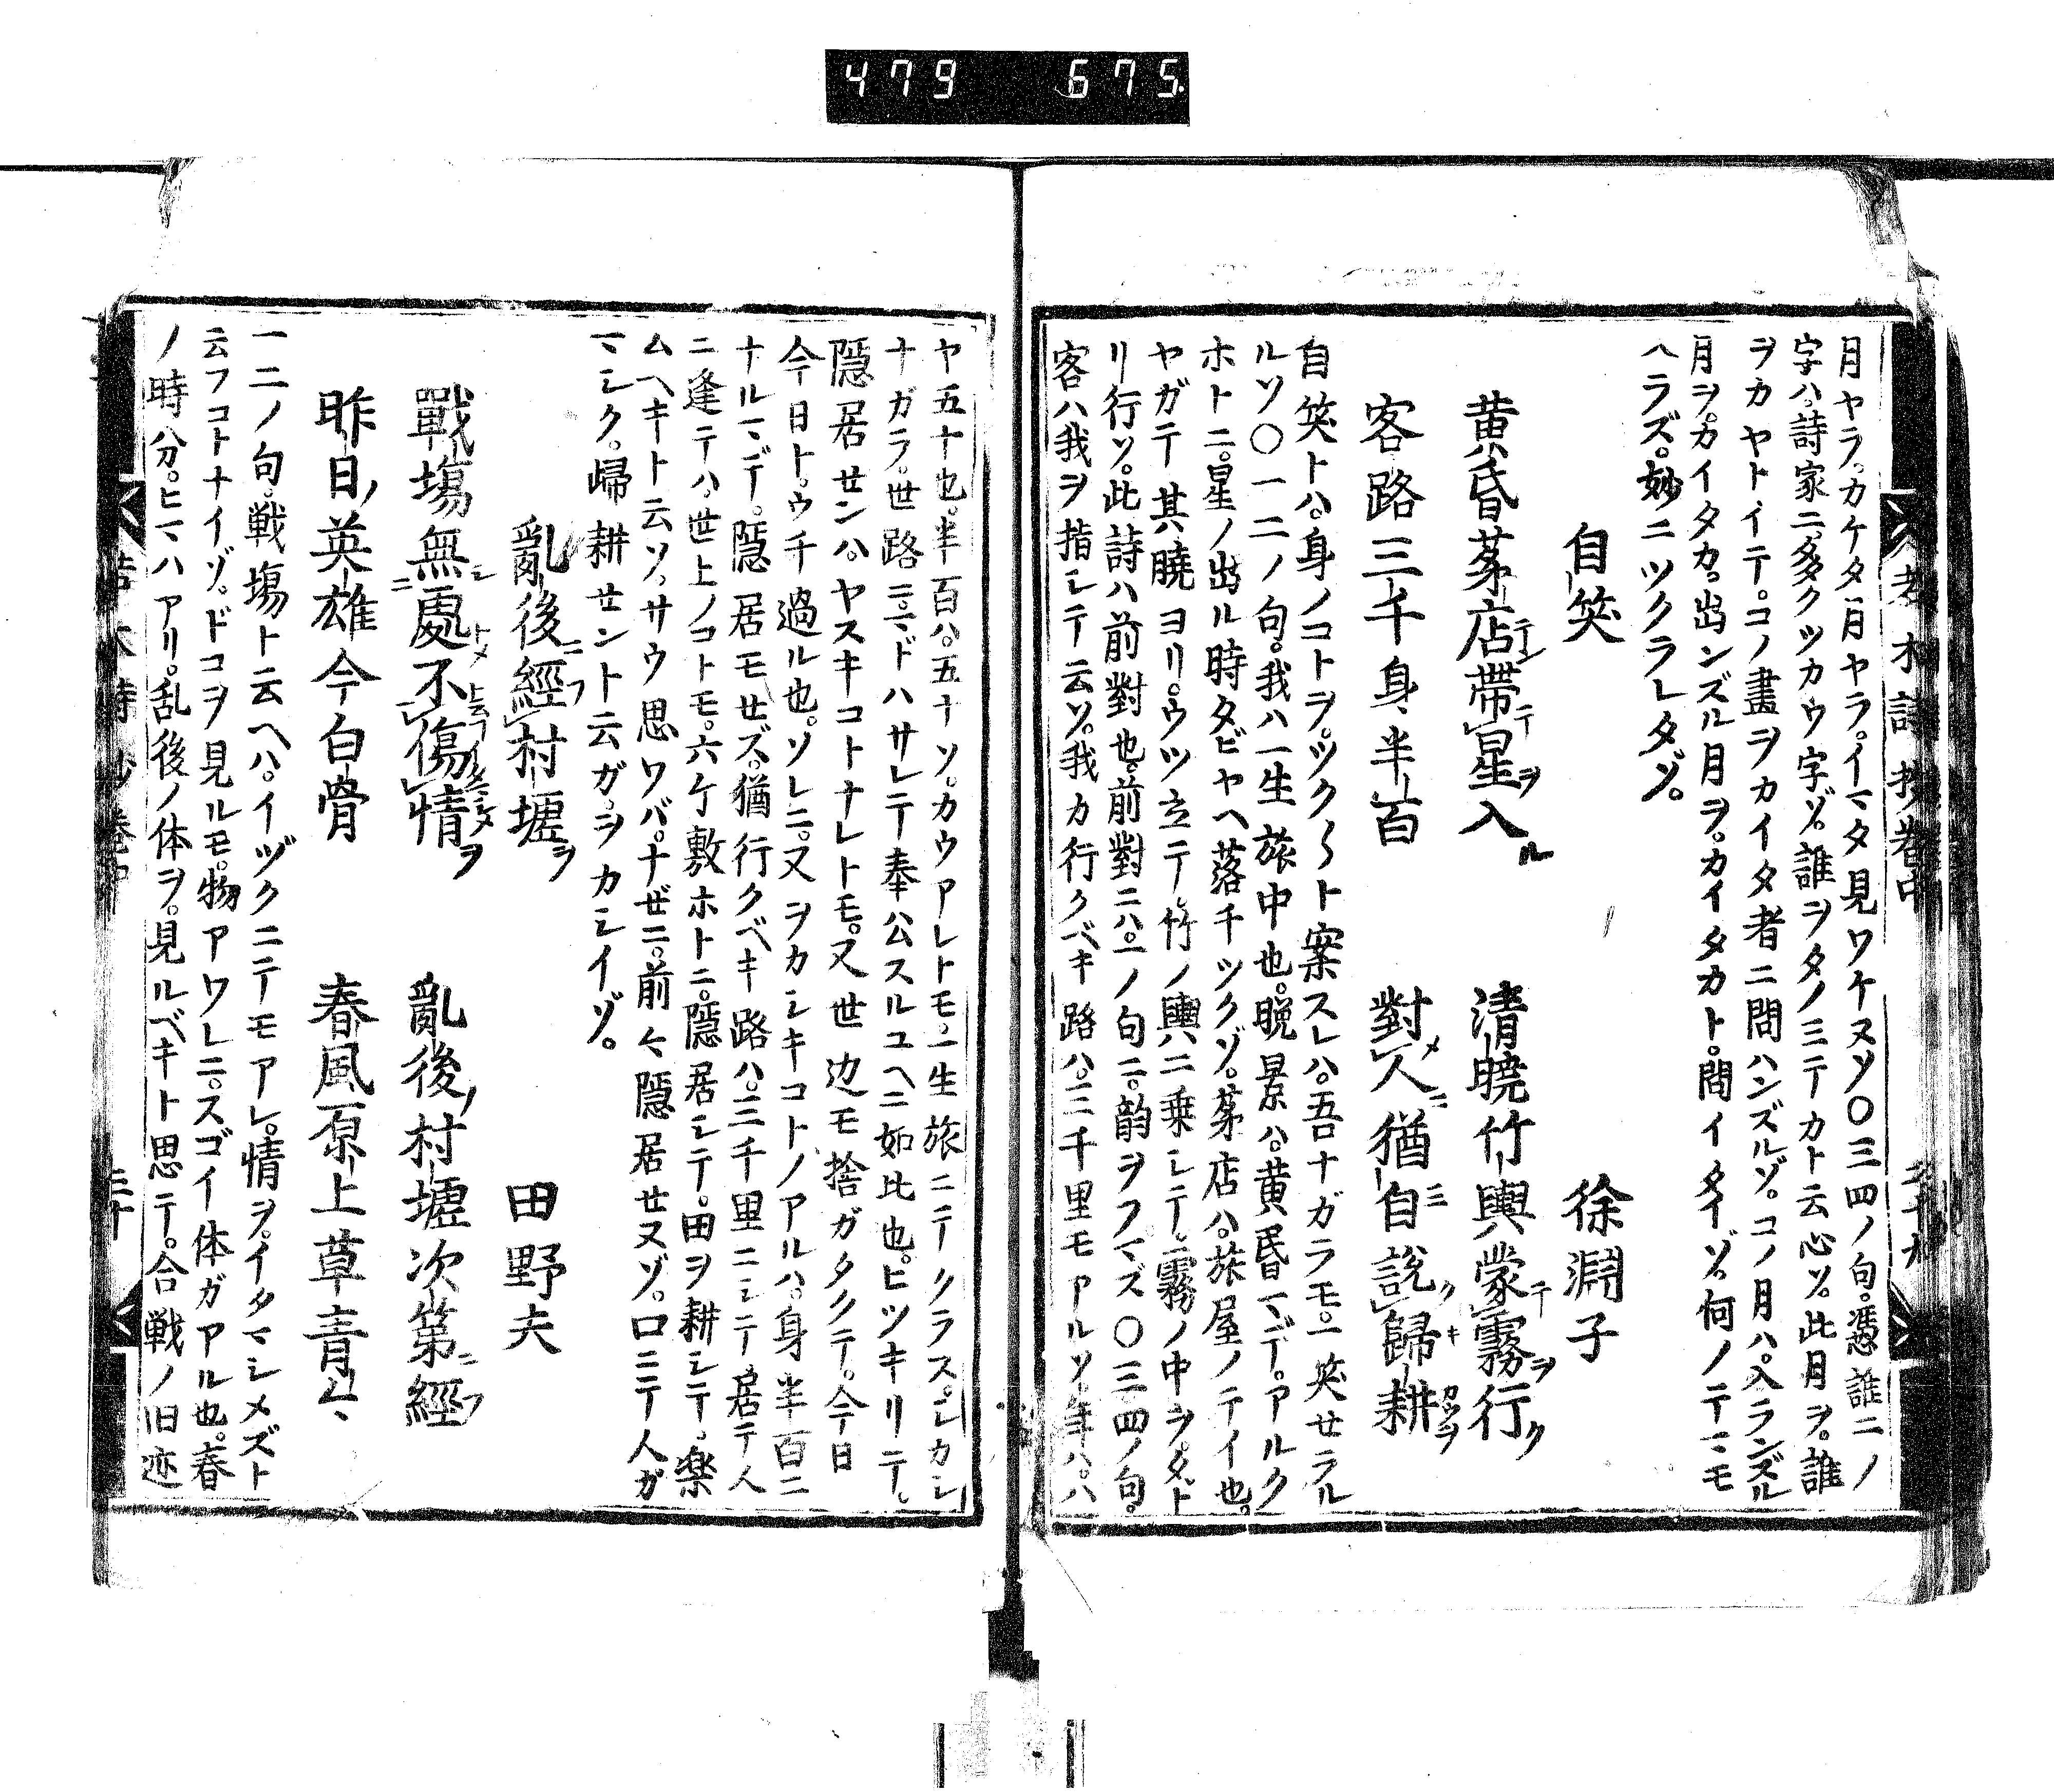 479 675
月ヤラ。カケタ月ヤラ。イマタ見ワケヌソ〇三四ノ句。憑誰ニノ
字ハ。詩家ニ多クツカウ字ゾ。誰ヲタノミテカト云心ソ。此月ヲ。誰
ヲカヤトイテ。コノ畫ヲカイタ者ニ問ハンズルゾ。コノ月ハ。入ランズル
月ヲ。カイタカ。出ンズル月ヲ。カイタカト。問イタイゾ。何ノテニモ
ハラズ。妙ニツクラレタゾ。
自笑 徐淵子
黄昏茅店帶星入 清曉竹輿蒙霧行
客路三千身半百 對人猶自說歸耕
自笑トハ。身ノコトヲ。ツク〱ト案スレハ。吾ナガラモ。一笑せラル
ルソ〇一二ノ句。我ハ一生旅中也。晩景ハ。黄昏マデ。アルク
ホトニ。星ノ出ル時タビヤヘ落チツクゾ。茅店ハ。旅屋ノテイ也。
ヤガテ其曉ヨリ。ウツ立テ。竹ノ輿ニ乗シテ。霧ノ中ヲ。タト
リ行ソ。此詩ハ前對也。前對ニハ。一ノ句ニ。韵ヲフマズ〇三四ノ句。
客ハ我ヲ指シテ云ソ。我カ行クベキ路ハ。三千里モアルソ年ハ。ハ
ヤ五十也。半百ハ。五十ソ。カウアレトモ。一生旅ニテクラス。シカシ
ナガラ。世路ニマドハサレテ奉公スルユヘニ如此也。ヒツキリテ。
隠居せンハ。ヤスキコトナレトモ。又世辺モ捨ガタクテ。今日
今日ト。ウチ過ル也。ソレニ。又ヲカシキコトノアルハ。身半百ニ
ナルマデ。隠居モせズ。猶行クベキ路ハ。三千里ニシテ居テ人
ニ逢テハ。世上ノコトモ。六ケ敷ホトニ。隠居シテ。田ヲ耕シテ。楽
ムヘキト云ソ。サウ思ワバ。ナぜニ。前々隠居せヌゾ。口ニテ人ガ
マシク。歸耕せント云ガ。ヲカシイゾ。
亂後經村壚 田野夫
戰場無處不傷情 亂後村壚次第經
昨日英雄今白骨 春風原上草青々
一二ノ句。戦場ト云ヘハ。イヅクニテモアレ。情ヲ。イタマシメズト
云フコトナイゾ。ドコヲ見ルモ。物アワレニ。スゴイ体ガアル也。春
ノ時分。ヒマハアリ。乱後ノ体ヲ。見ルベキト思テ。合戦ノ旧迹